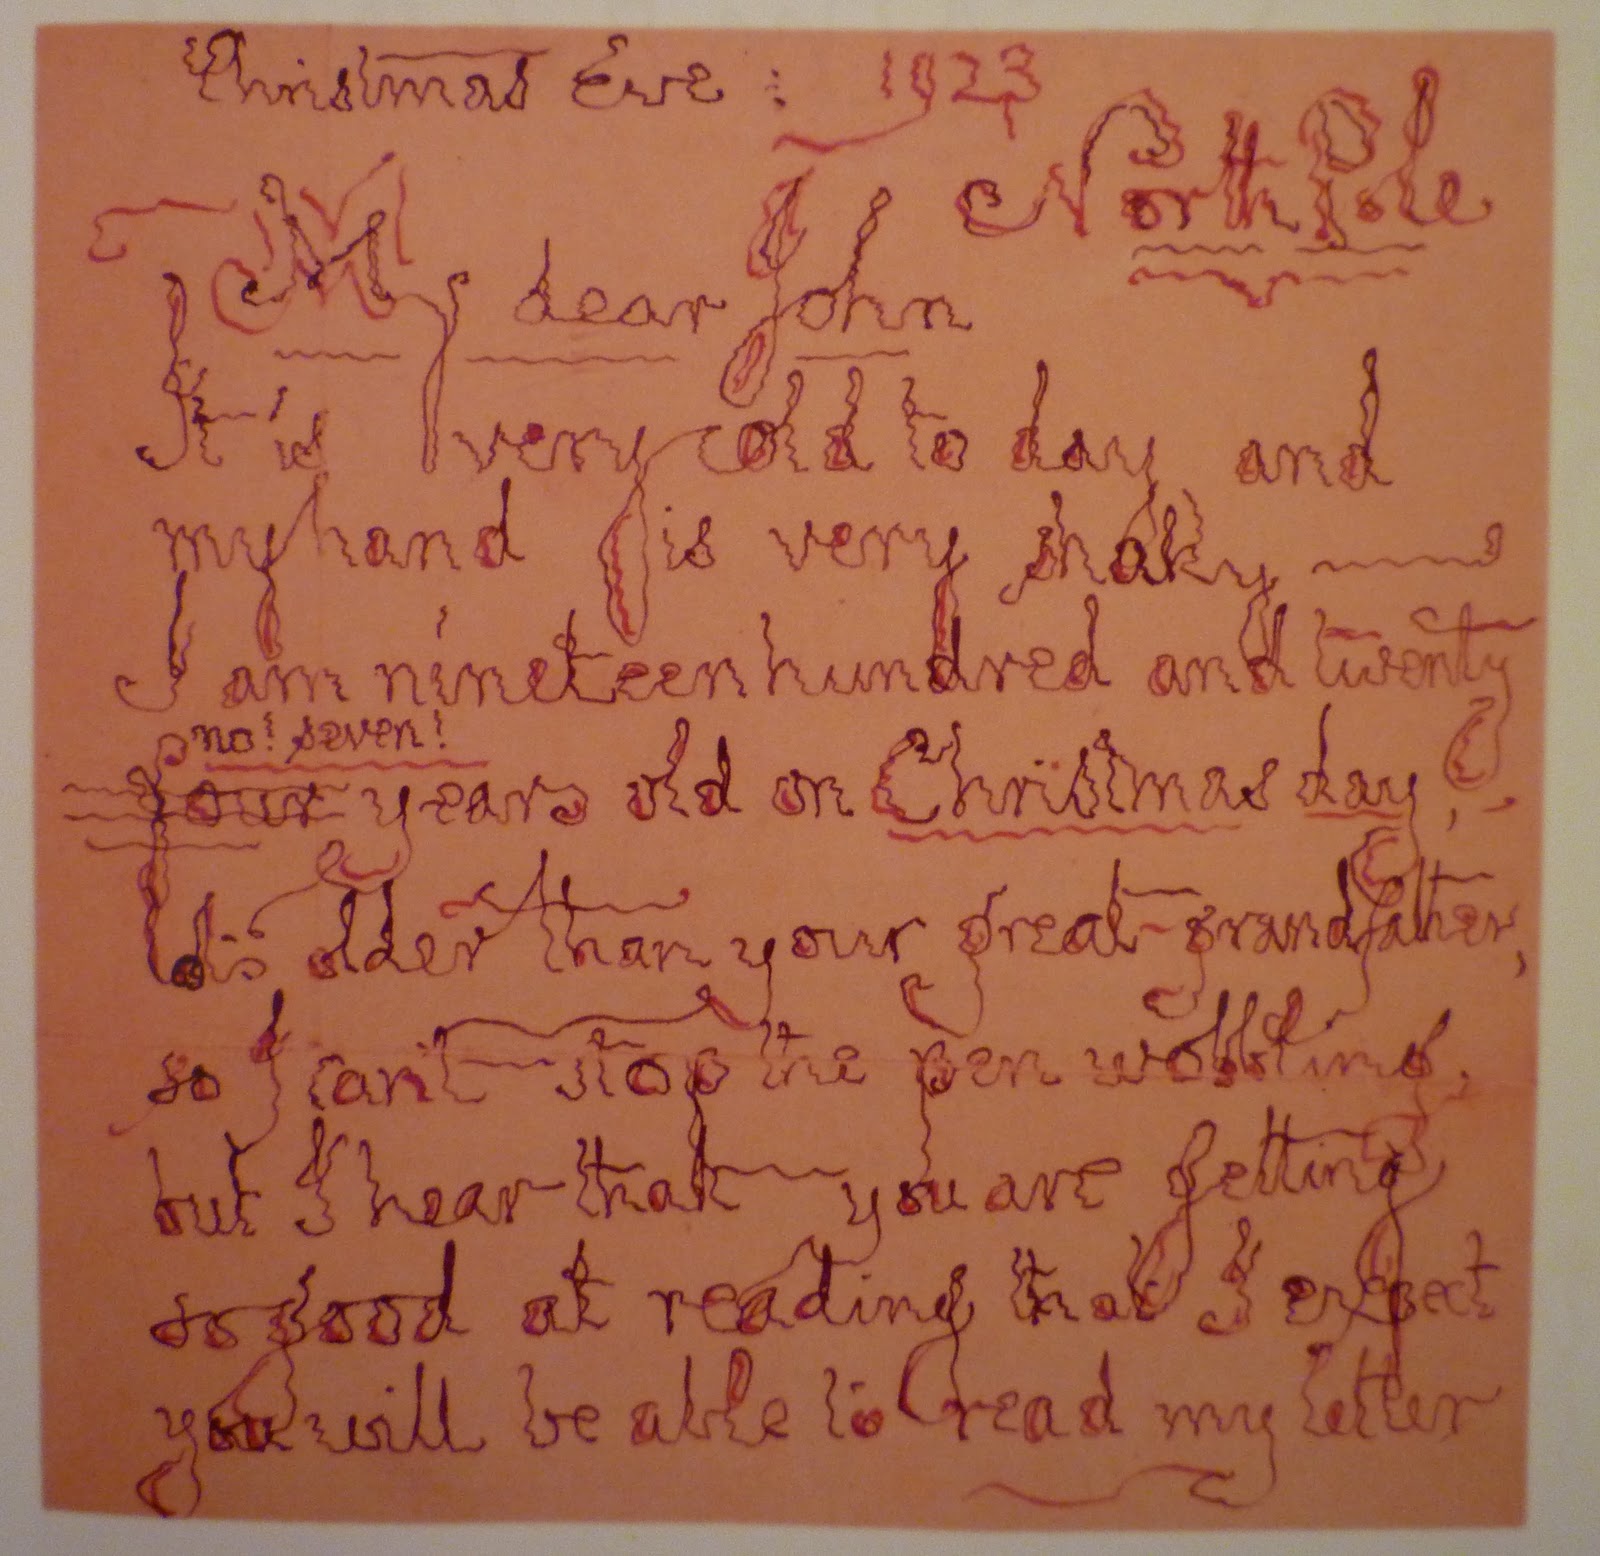 Christmas Eve : 1923
North Pole
My dear John
It is very cold to day and
my hand is very shaky
I am nineteen hundred and twenty
no! seven!
four years old on Christmas day,
lots older than your great-grandfather,
so I can't stop the pen wobbling,
but I hear that you are getting
so good at reading that I expect
you will be able to read my letter